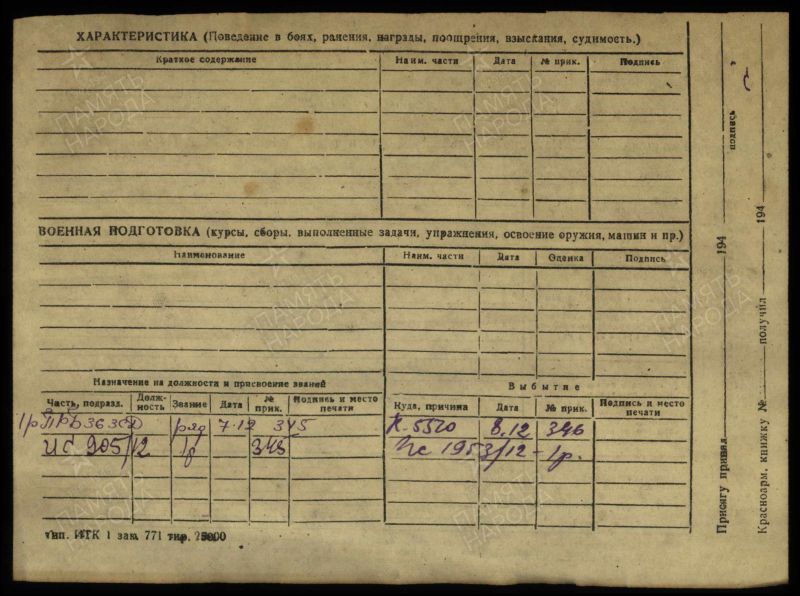 ХАРАКТЕРИСТИКА (Поведение в боях, ранения, награды, поощрения, взыскания, судимость.)
Краткое содержание Наим. части Дата № прик. Подпись
ВОЕННАЯ ПОДГОТОВКА (курсы, сборы, выполненные задачи, упражнения, освоение оружия, машин и пр.)
Наименование Наим. части Дата Оценка Подпись
Назначение на должности и присвоение званий
Часть, подразд. Должность Звание Дата № прик. Подпись и место печати
ряд 7.12 345
905/12 345
Выбытие
Куда, причина Дата № прик. Подпись и место печати
К-5520 8.12 346
1953/12-
тип. ИТК 1 зак. 771 тир.
Присягу принял 194 подпись
Красноарм. книжку № получил 194
ПАМЯТЬ НАРОДА
ПАМЯТЬ НАРОДА
ПАМЯТЬ НАРОДА
ПАМЯТЬ НАРОДА
ПАМЯТЬ НАРОДА
ПАМЯТЬ НАРОДА